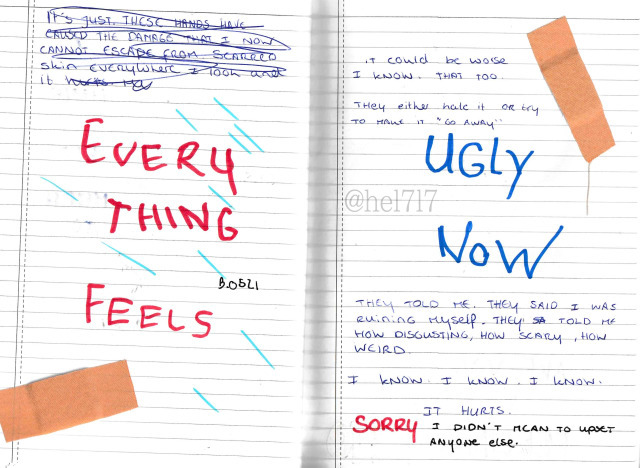 It's just. These hands have
caused the damage that I now
cannot escape from scarred
skin everywhere I look and
it hurts.
EVERY
THING
FEELS
it could be worse
I know. that too.
They either hate it or try
to make it "go away"
UGLY
NOW
@hel717
They told me. They said I was
ruining myself. They told me
how disgusting, how scary, how
weird.
I know. I know. I know.
It hurts.
SORRY I didn't mean to upset
anyone else.